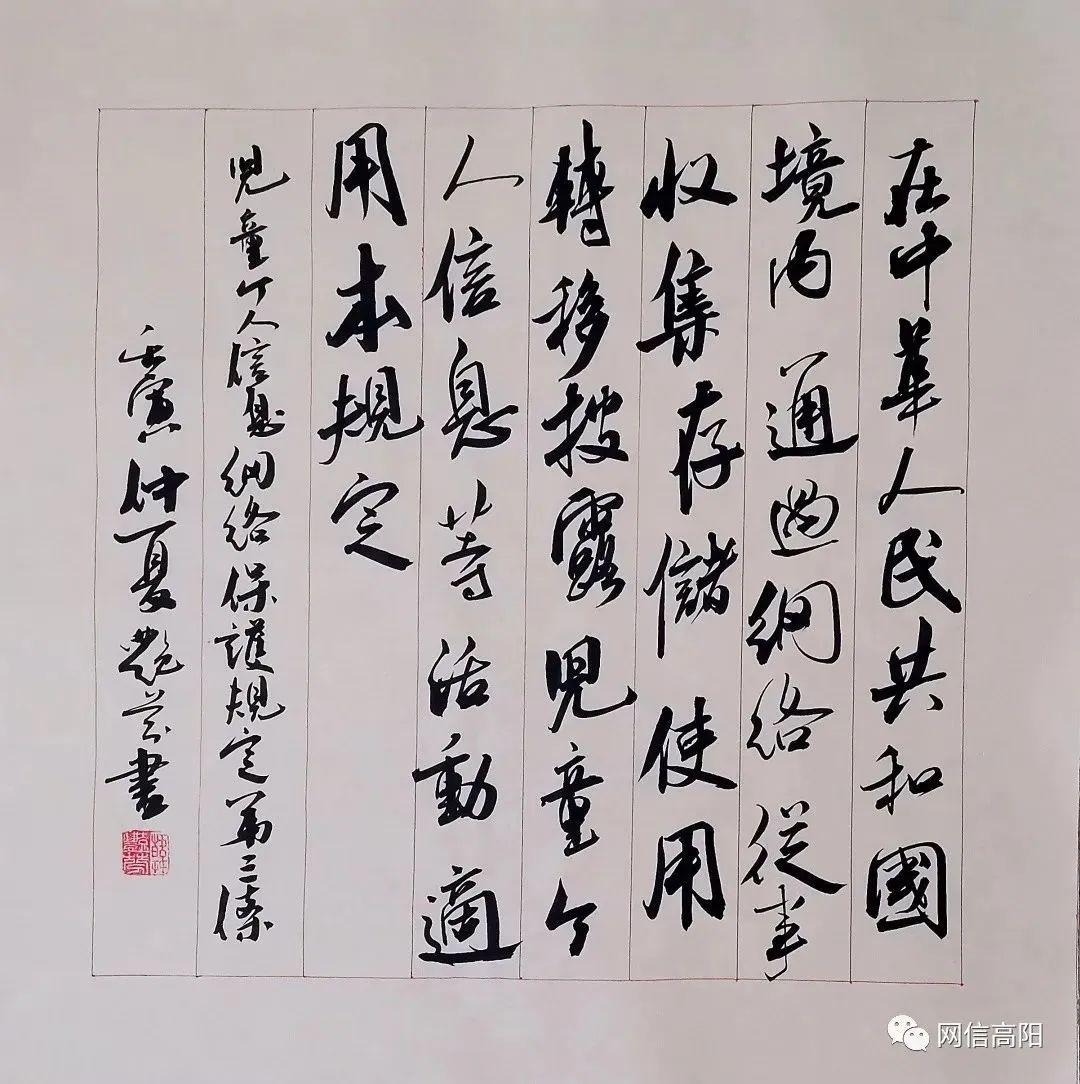 在中華人民共和國
境内通過網絡從事
收集存儲使用
轉移披露兒童个
人信息等活動適
用本規定
兒童个人信息網絡保護規定第三條
壬寅仲夏艷書
网信高阳